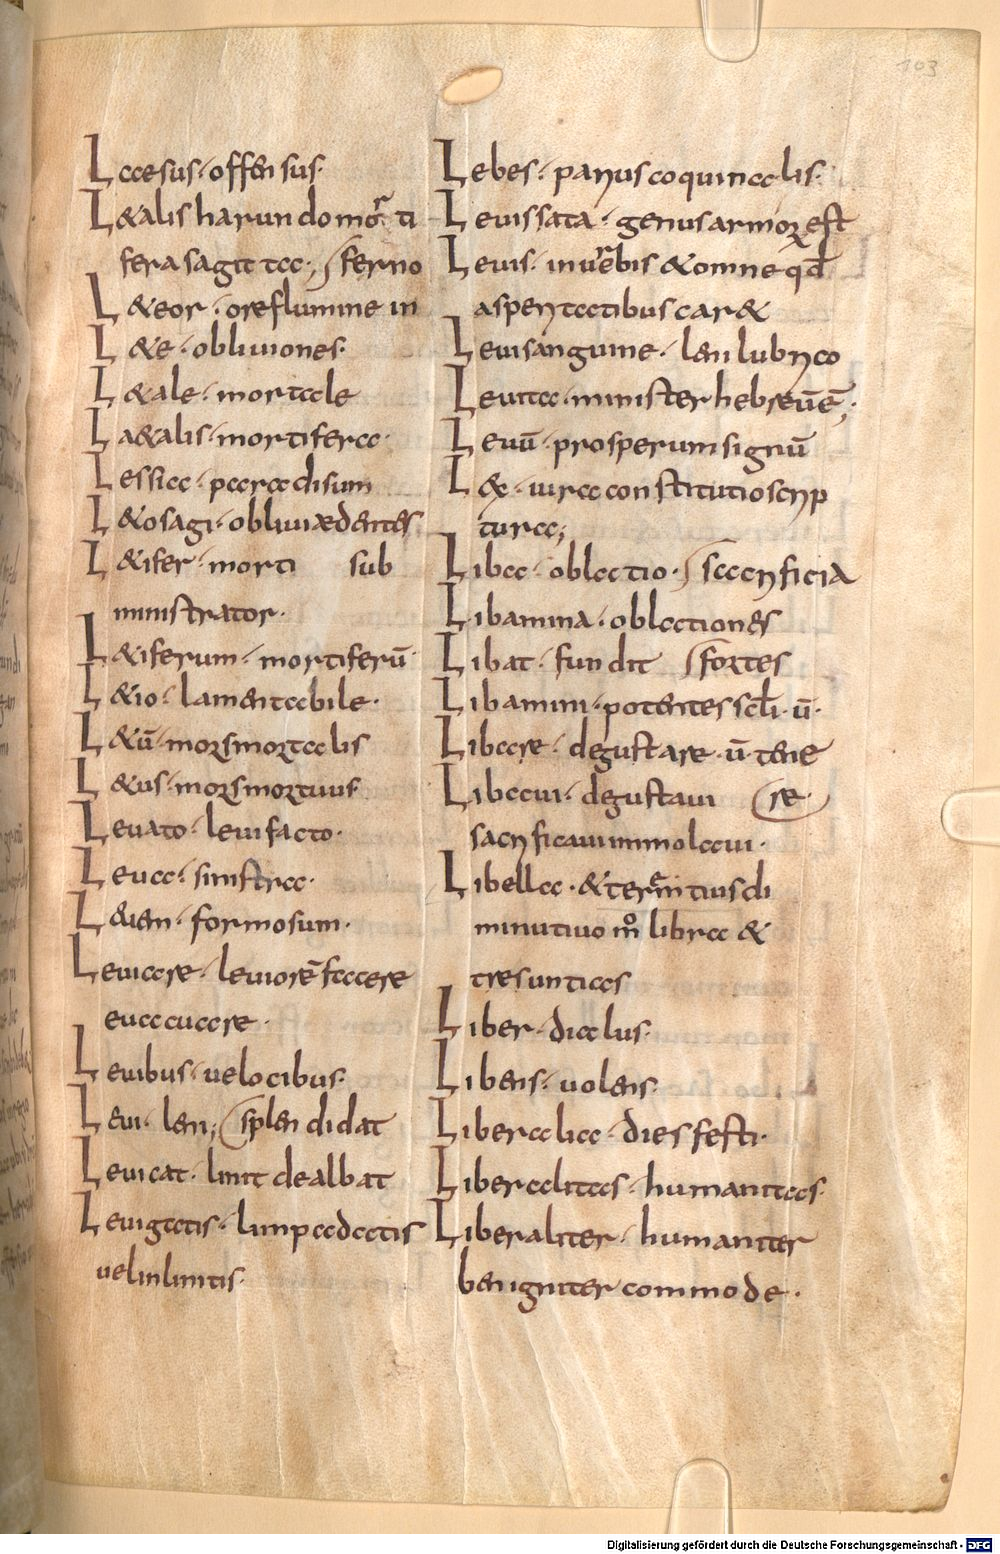 103
Laesus · offensus ·
L&alis harundo mor ti
fera sagitta · ferno
L&eor · ore flumine in
L&e · obliuiones ·
L&ale · mortale
La&alis · mortifera ·
Lessia · paradisum
L&osagi · obliuiædentes
L&ifer · morti sub
ministrator ·
L&iferum · mortiferū
L&io · lamentabile ·
L&ū · mors mortalis
L&us · mors mortuus
Leuato · leui facto ·
Leua · sinistra ·
L&ien · formosum ·
Leuiare · leuiorē facere
euacuare ·
Leuibus · uelocibus ·
Leui · leni; splendidat
Leuicat · linit dealbat
Leuigatis · limpadatis
uel inlimtis ·
Lebes · parius coquinalis ·
Leuissata · genus armor est
Leuis · in uerbis & omne qd
asperitatibus car&
Leuisanguine · leni lubrico
Leuita · minister hebreūē;
Leuū · prosperum signū
Lex · iura constitutio scrip
tura;
Liba · oblatio · sacrificia
Libamina · oblationes
Libat · fundit fortes
Libamini · potentes scłi · ū ·
Libare · degustare · ū · tene
Libaui · degustaui re ·
sacrificaui immolaui ·
Libella · & terentius di
minutiuo mo libra &
tres untias
Liber · dialus ·
Libens · uolens ·
Liberalia · dies festi ·
Liberalitas · humanitas ·
Liberaliter · humaniter
benigniter commode ·
Digitalisierung gefördert durch die Deutsche Forschungsgemeinschaft - DFG